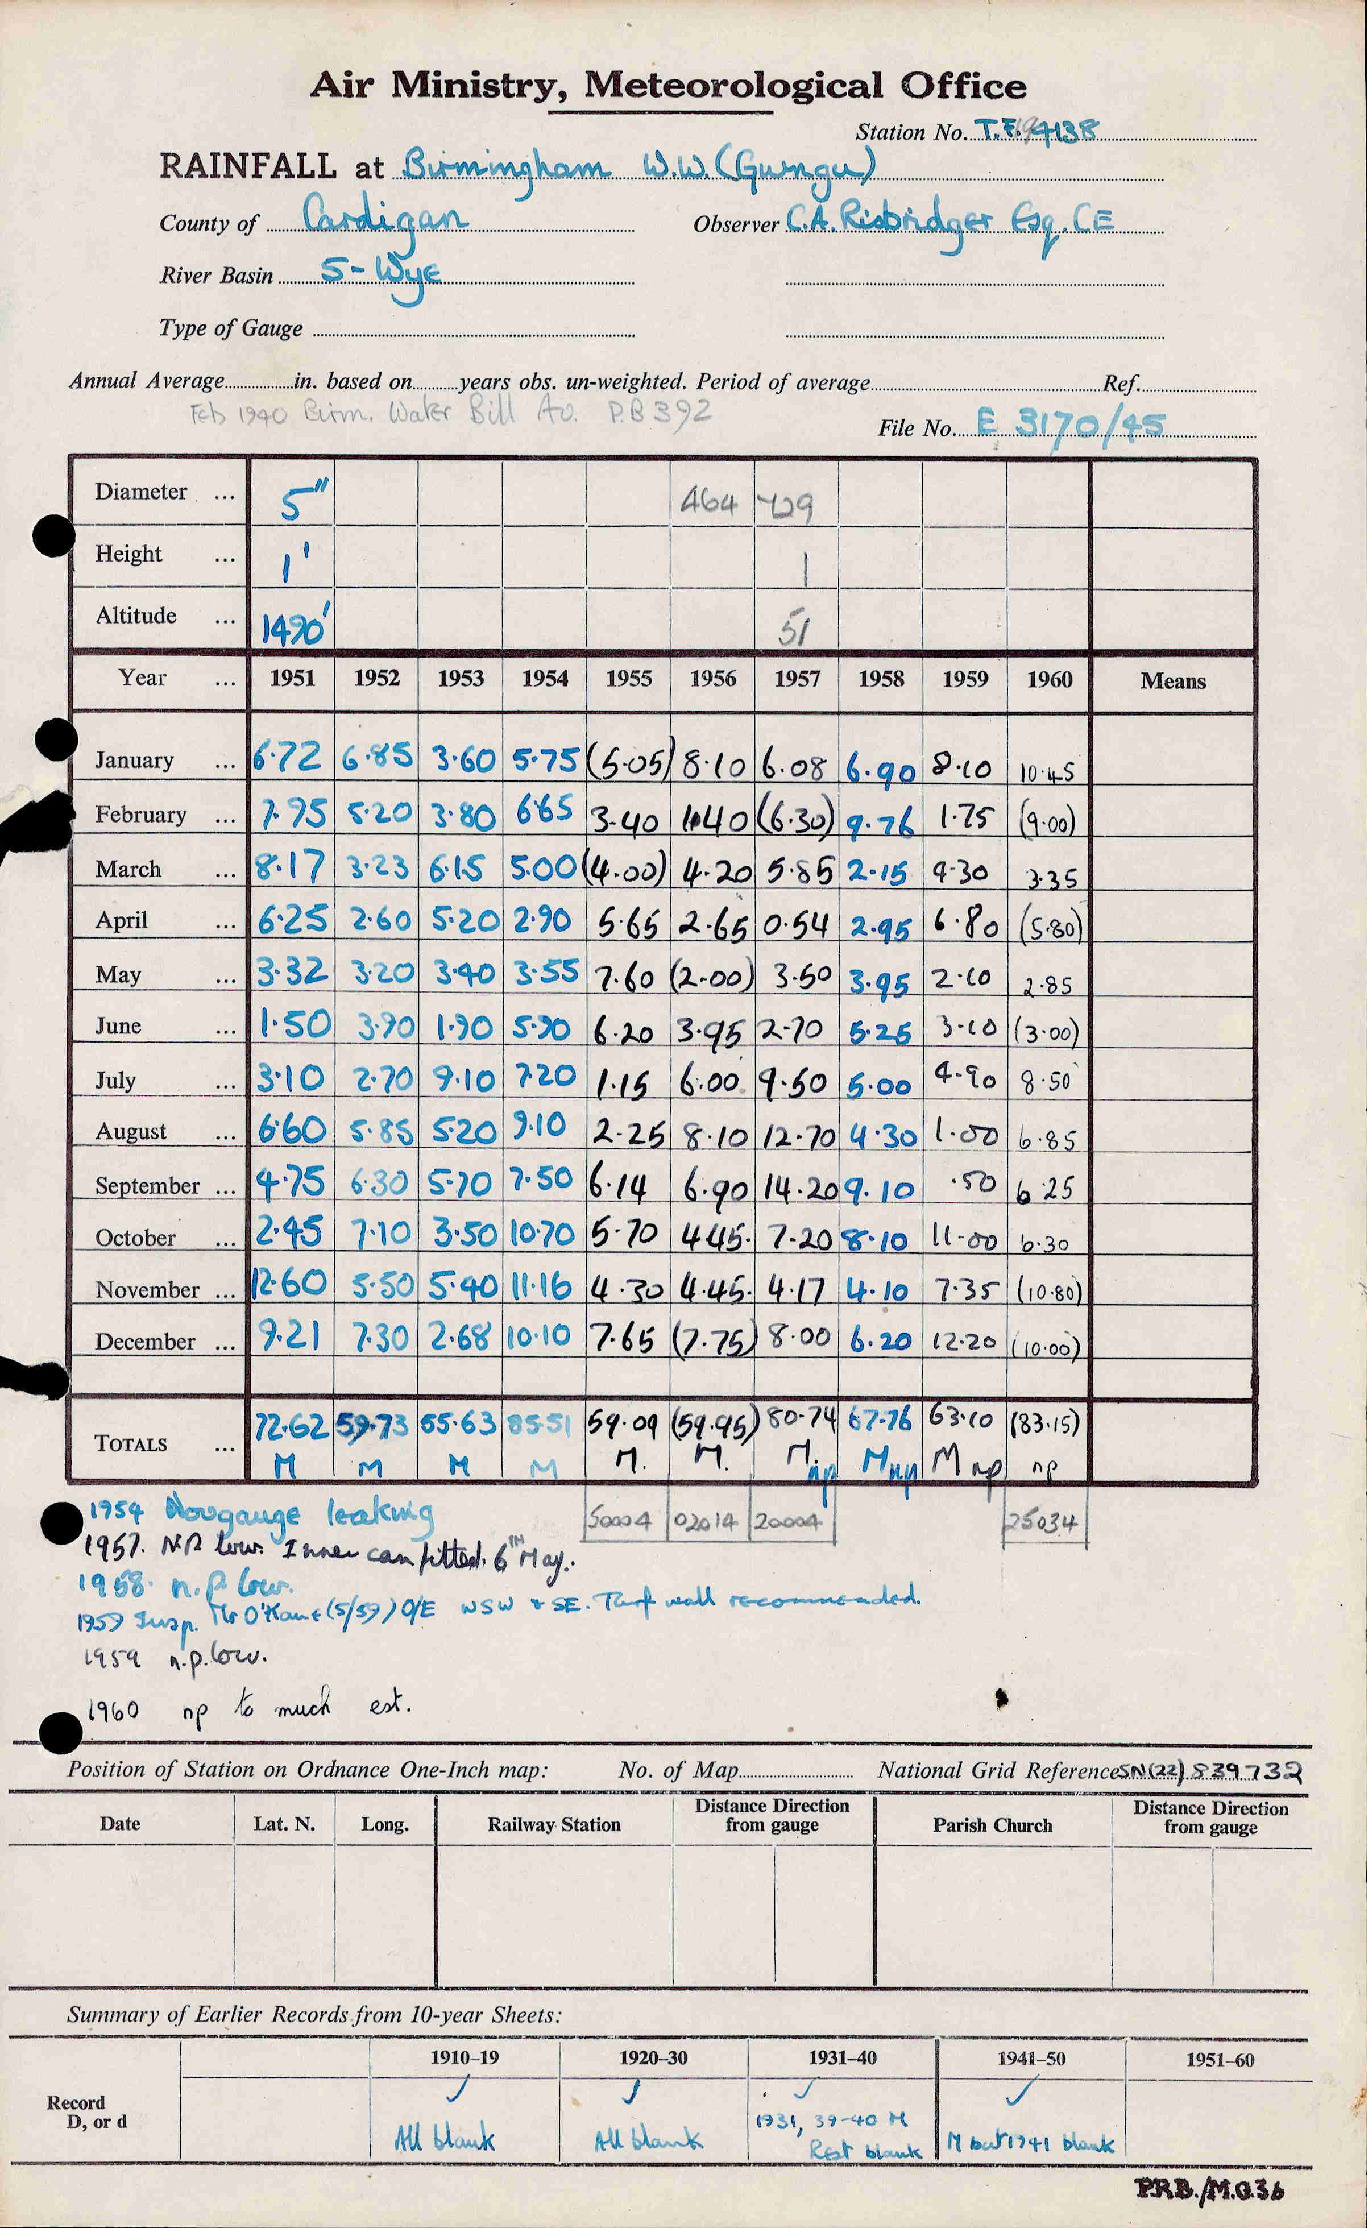 Air Ministry, Meteorological Office
Station No. T.F. 4138
RAINFALL at Birmingham W.W. (Gwngu)
County of Cardigan Observer C.A. Risbridger Esq. CE
River Basin 5-Wye
Type of Gauge
Annual Average in. based on years obs. un-weighted. Period of average Ref.
Feb 1940 Birm. Water Bill Av. P.B 392
File No. E 3170/45
Diameter ... 5" 464 729
Height ... 1' 1
Altitude ... 1490' 51
Year ... 1951 1952 1953 1954 1955 1956 1957 1958 1959 1960 Means
January ... 6.72 6.85 3.60 5.75 (5.05) 8.10 6.08 6.90 8.10 10.45
February ... 7.95 5.20 3.80 6.65 3.40 1.40 (6.30) 9.76 1.75 (9.00)
March ... 8.17 3.23 6.15 5.00 (4.00) 4.20 5.85 2.15 4.30 3.35
April ... 6.25 2.60 5.20 2.90 5.65 2.65 0.54 2.95 6.80 (5.80)
May ... 3.32 3.20 3.40 3.55 7.60 (2.00) 3.50 3.95 2.10 2.85
June ... 1.50 3.90 1.90 5.90 6.20 3.95 2.70 5.25 3.10 (3.00)
July ... 3.10 2.70 9.10 7.20 1.15 6.00 9.50 5.00 4.90 8.50
August ... 6.60 5.85 5.20 9.10 2.25 8.10 12.70 4.30 1.00 6.85
September ... 4.75 6.30 5.70 7.50 6.14 6.90 14.20 9.10 .50 6.25
October ... 2.45 7.10 3.50 10.70 5.70 4.45. 7.20 8.10 11.00 6.30
November ... 12.60 5.50 5.40 11.16 4.30 4.45. 4.17 4.10 7.35 (10.80)
December ... 9.21 7.30 2.68 10.10 7.65 (7.75) 8.00 6.20 12.20 (10.00)
TOTALS ... 72.62 59.73 55.63 85.51 59.09 (59.95) 80.74 67.76 63.10 (83.15)
M M M M M. M. M. np M np M np np
1954 Nov gauge leaking 50004 02014 20004 25034
1957. NP low. Inner can fitted. 6TH May.
1958. n.p low.
1959 Insp. Mr O'Kane (5/59) O/E WSW & SE. Turf wall recommended.
1959 n.p. low.
1960 np to much est.
Position of Station on Ordnance One-Inch map: No. of Map National Grid Reference SN(22) 839732
Date Lat. N. Long. Railway Station Distance Direction from gauge Parish Church Distance Direction from gauge
Summary of Earlier Records from 10-year Sheets:
1910–19 1920–30 1931–40 1941–50 1951–60
Record D, or d
✓ ✓ ✓ ✓
All blank All blank 1931, 39-40 M Rest blank M but 1941 blank
P.R.B./M.O.36